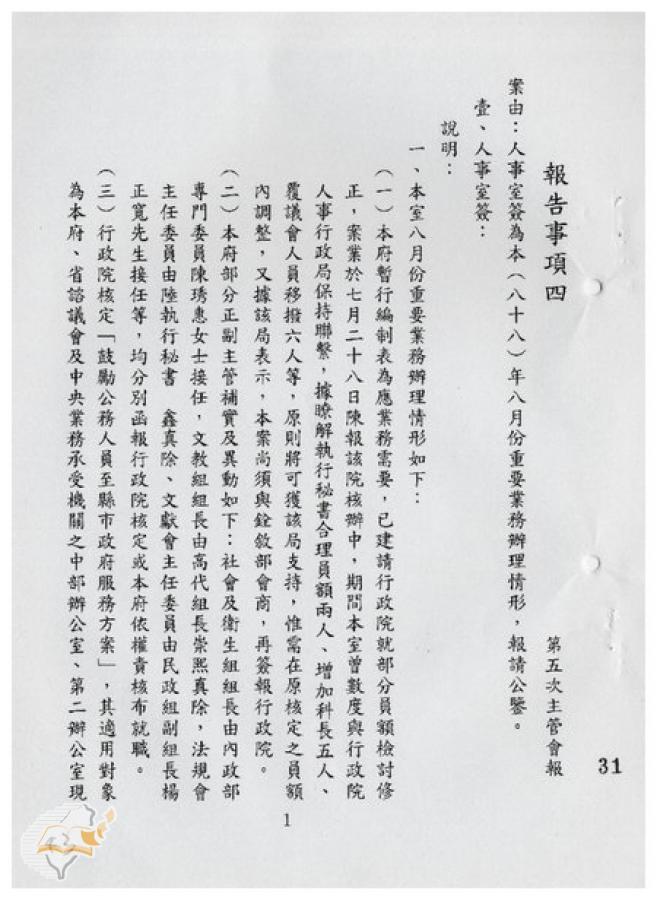 31
報告事項四
第五次主管會報
案由：人事室簽為本（八十八）年八月份重要業務辦理情形，報請公鑒。
壹、人事室簽：
說明：
一、本室八月份重要業務辦理情形如下：
（一）本府暫行編制表為應業務需要，已建請行政院就部分員額檢討修
正，案業於七月二十八日陳報該院核辦中，期間本室曾數度與行政院
人事行政局保持聯繫，據瞭解執行秘書合理員額兩人、增加科長五人、
覆議會人員移撥六人等，原則將可獲該局支持，惟需在原核定之員額
內調整，又據該局表示，本案尚須與銓敘部會商，再簽報行政院。
（二）本府部分正副主管補實及異動如下：社會及衛生組組長由內政部
專門委員陳琇惠女士接任，文教組組長由高代組長崇熙真除，法規會
主任委員由陸執行秘書　鑫真除、文獻會主任委員由民政組副組長楊
正寬先生接任等，均分別函報行政院核定或本府依權責核布就職。
（三）行政院核定「鼓勵公務人員至縣市政府服務方案」，其適用對象
為本府、省諮議會及中央業務承受機關之中部辦公室、第二辦公室現
1